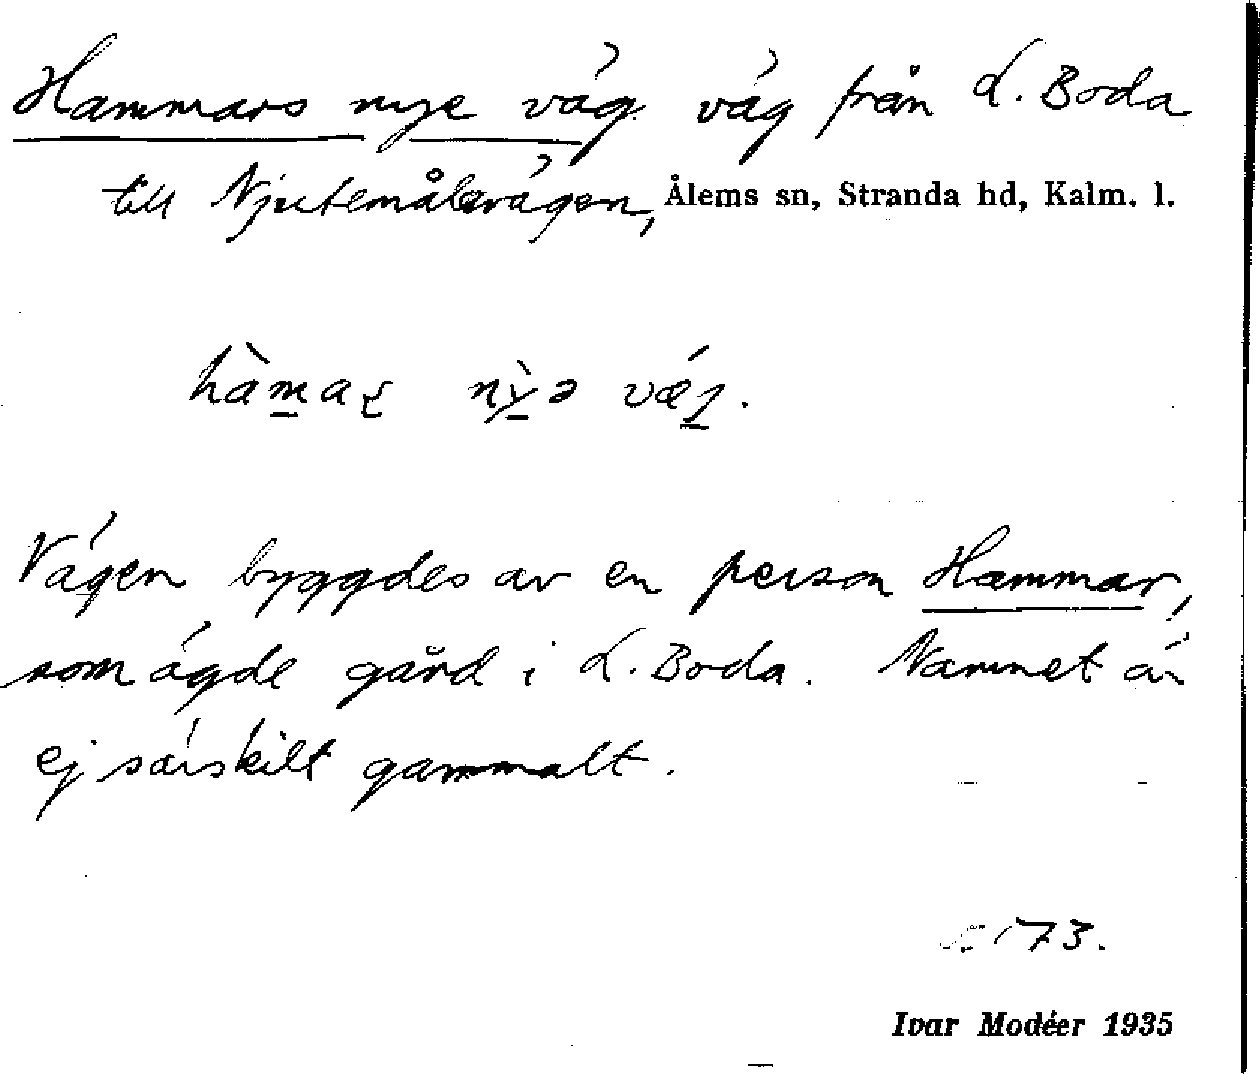 Hammars nye väg. väg från L. Boda
till Njutemålavägen, Ålems sn, Stranda hd, Kalm. l.
hàmaꭇ nỳə væ̗ꭍ.
Vägen byggdes av en person Hammar,
som ägde gård i L. Boda. Namnet är
ej särskilt gammalt.
173.
Ivar Modéer 1935